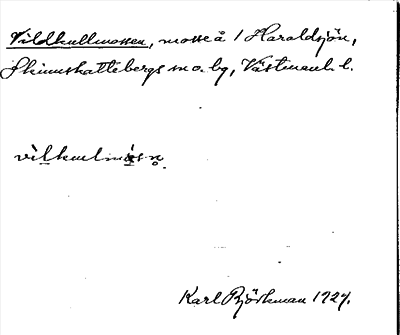 Vildkullmossen, mosse å 1 Haraldsjön,
Skinnskattebergs sn o. bg, Västmanl. l.
Karl Björkman 1927.